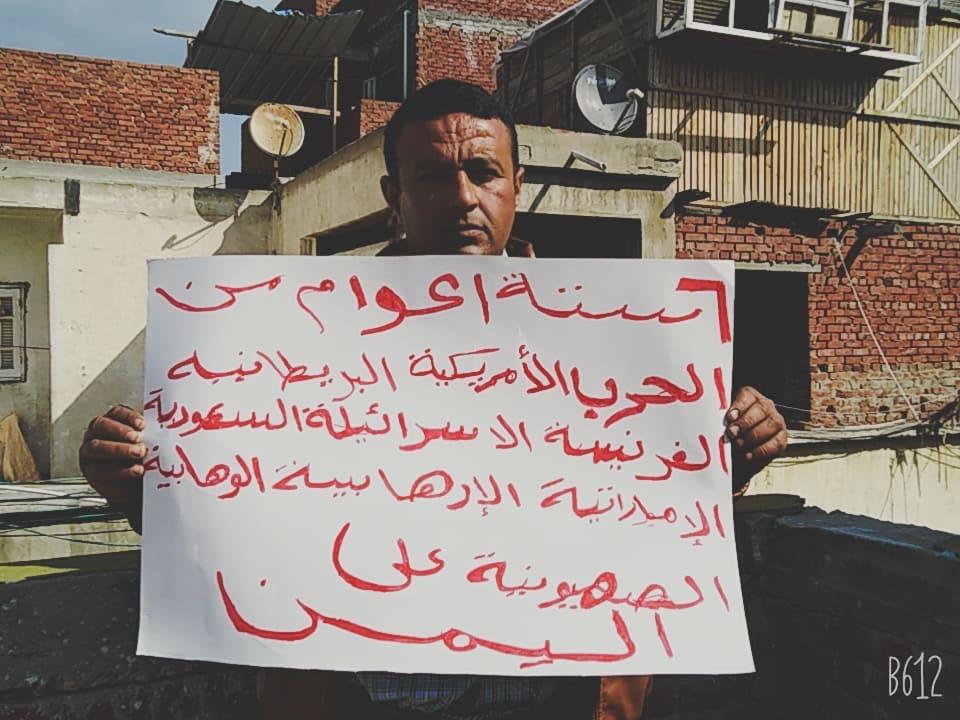 ٦ ستة اعوام من
الحرب الأمريكية البريطانيه
الفرنسية الاسرائيلة السعودية
الإماراتية الإرهابية الوهابية
الصهيونية على
اليمن
B612